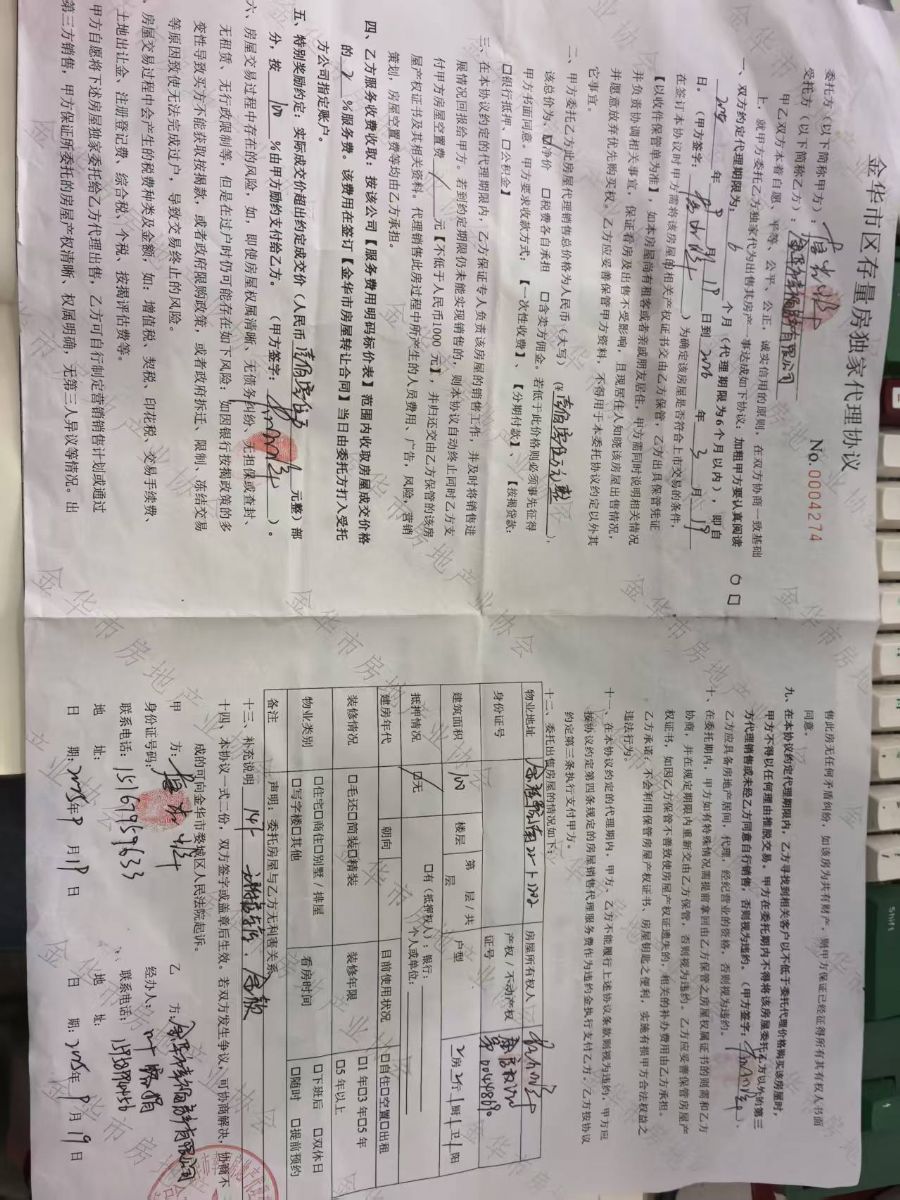 金华市区存量房独家代理协议
No.0004274
委托方（以下简称甲方）：
受托方（以下简称乙方）：
甲乙双方本着自愿、平等、公平、公正、诚实信用的原则，在双方协商一致基础
上，就甲方委托乙方独家代为出售其房产，事达成如下协议，加粗甲方要认真阅读
一、双方约定代理期限为：6个月（代理期限为6个月以内），即自
2025年9月19日到2026年3月19
日。（甲方签字：）为确定该房屋是否符合上市交易的条件，
在签订本协议时甲方需将该房屋的相关产权证书交由乙方保管，乙方出具保管凭证
【以收件保管单为准】，如本房屋尚有租客或者亲戚朋友居住，甲方需同时说明相关情况
并负责协调相关事宜，保证看房及出售不受影响，且现居住人知晓该房屋出售情况，
并愿意放弃优先购买权。乙方应妥善保管甲方资料，不得用于本委托协议约定以外其
它事宜。
二、甲方委托乙方此房屋代理销售总价格为人民币（大写）
该总价为：☑净价 □税费各自承担 □含卖方佣金。若低于此价格则必须事先征得
甲方书面同意。甲方要求收款方式：【一次性收费】、【分期付款】、【按揭贷款：
□银行抵押、□公积金】
三、在本协议约定的代理期限内，乙方保证专人负责该房屋的销售工作，并及时将销售进
展情况回报给甲方。若到约定期限仍未能实现销售的，则本协议自动终止同时乙方支
付甲方房屋空置费 / 元【不低于人民币1000元】，并归还交由乙方保管的该房
屋产权证书及其相关资料。代理销售此房过程中所产生的人员费用、广告，风险，营销
策划，房屋空置费等均由乙方承担。
四、乙方服务收费收取：按该公司【服务费用明码标价表】范围内收取房屋成交价格
的2%服务费。该费用在签订【金华市房屋转让合同】当日由委托方打入受托
方公司指定账户。
五、特别奖励约定：实际成交价超出约定成交价（人民币元整）部
分，按100%由甲方励约支付给乙方。（甲方签字：）。
六、房屋交易过程中存在的风险，如，即使房屋权属清晰、无债务纠纷、无担保或查封、
无租赁，无行政限制等，但是在过户时仍可能存在如下风险：如因银行按揭政策的多
变性导致买方不能获取按揭款，或者政府限购政策，或者政府拆迁、限制、冻结交易
等原因致使无法完成过户，导致交易终止的风险。
房屋交易过程中会产生的税费种类及金额，如：增值税、契税、印花税、交易手续费、
土地出让金、注册登记费、综合税、个税、按揭评估费等。
甲方自愿将下述房屋独家委托给乙方代理出售，乙方可自行制定营销销售计划或通过
第三方销售，甲方保证所委托的房屋产权清晰、权属明确，无第三人异议等情况。出
售此房无任何矛盾纠纷，如该房为共有财产，则甲方保证已经征得所有其有权人书面
同意。
九、在本协议约定代理期限内，乙方寻找到相关客户以不低于委托代理价格购买该房屋时，
甲方不得以任何理由推脱交易，甲方在委托期内不得将该房屋委托乙方以外的第三
方代理销售或未经乙方同意自行销售，否则视为违约。（甲方签字：）
乙方应具备房地产居间，代理、经纪营业的资格，否则视为违约。
十、在委托期内，甲方如有特殊情况需提前拿回由乙方保管之房屋权属证书的则需和乙方
协商，并在规定期限内重新交由乙方保管，否则视为违约。乙方应妥善保管房屋产
权证书，如因乙方保管不善致使房屋产权证遗失的，相关的补办费用由乙方承担。
乙方承诺，不会利用保管房屋产权证书、房屋钥匙之便利，实施有损甲方合法权益之
违法行为。
十一、在本协议约定的代理期内，甲方、乙方不能履行上述协议条款则视为违约，甲方应
按协议约定第四条规定的房屋销售代理服务费作为违约金执行支付乙方，乙方按协议
约定第三条执行支付甲方。
十二、委托出售房屋的情况如下：
物业地址 房屋所有权人
身份证号 产权/不动产权证号
建筑面积 100 楼层 第 层/共 层 户型 2房2厅1厨1卫1阳
抵押情况 □无 □有（抵押权人）：银行： 个人或单位：
建房年代 朝向 目前使用状况 □自住□空置□出租
装修情况 □毛还□简装□精装 装修年限 □1年□3年□5年 □5年以上
物业类别 □住宅□商住□别墅/排屋 □写字楼□其他 看房时间 □下班后 □双休日 □随时 □提前预约
备注 声明：委托房屋与乙方无利害关系
十三、补充说明
十四、本协议一式二份，双方签字或盖章后生效。若双方发生争议，可协商解决，协商不
成的可向金华市婺城区人民法院起诉。
甲 方： 乙 方：
身份证号码： 经办人：
联系电话：15167959633 联系电话：
地 址： 地 址：
日 期：2025年9月19日 日 期：2025年9月19日